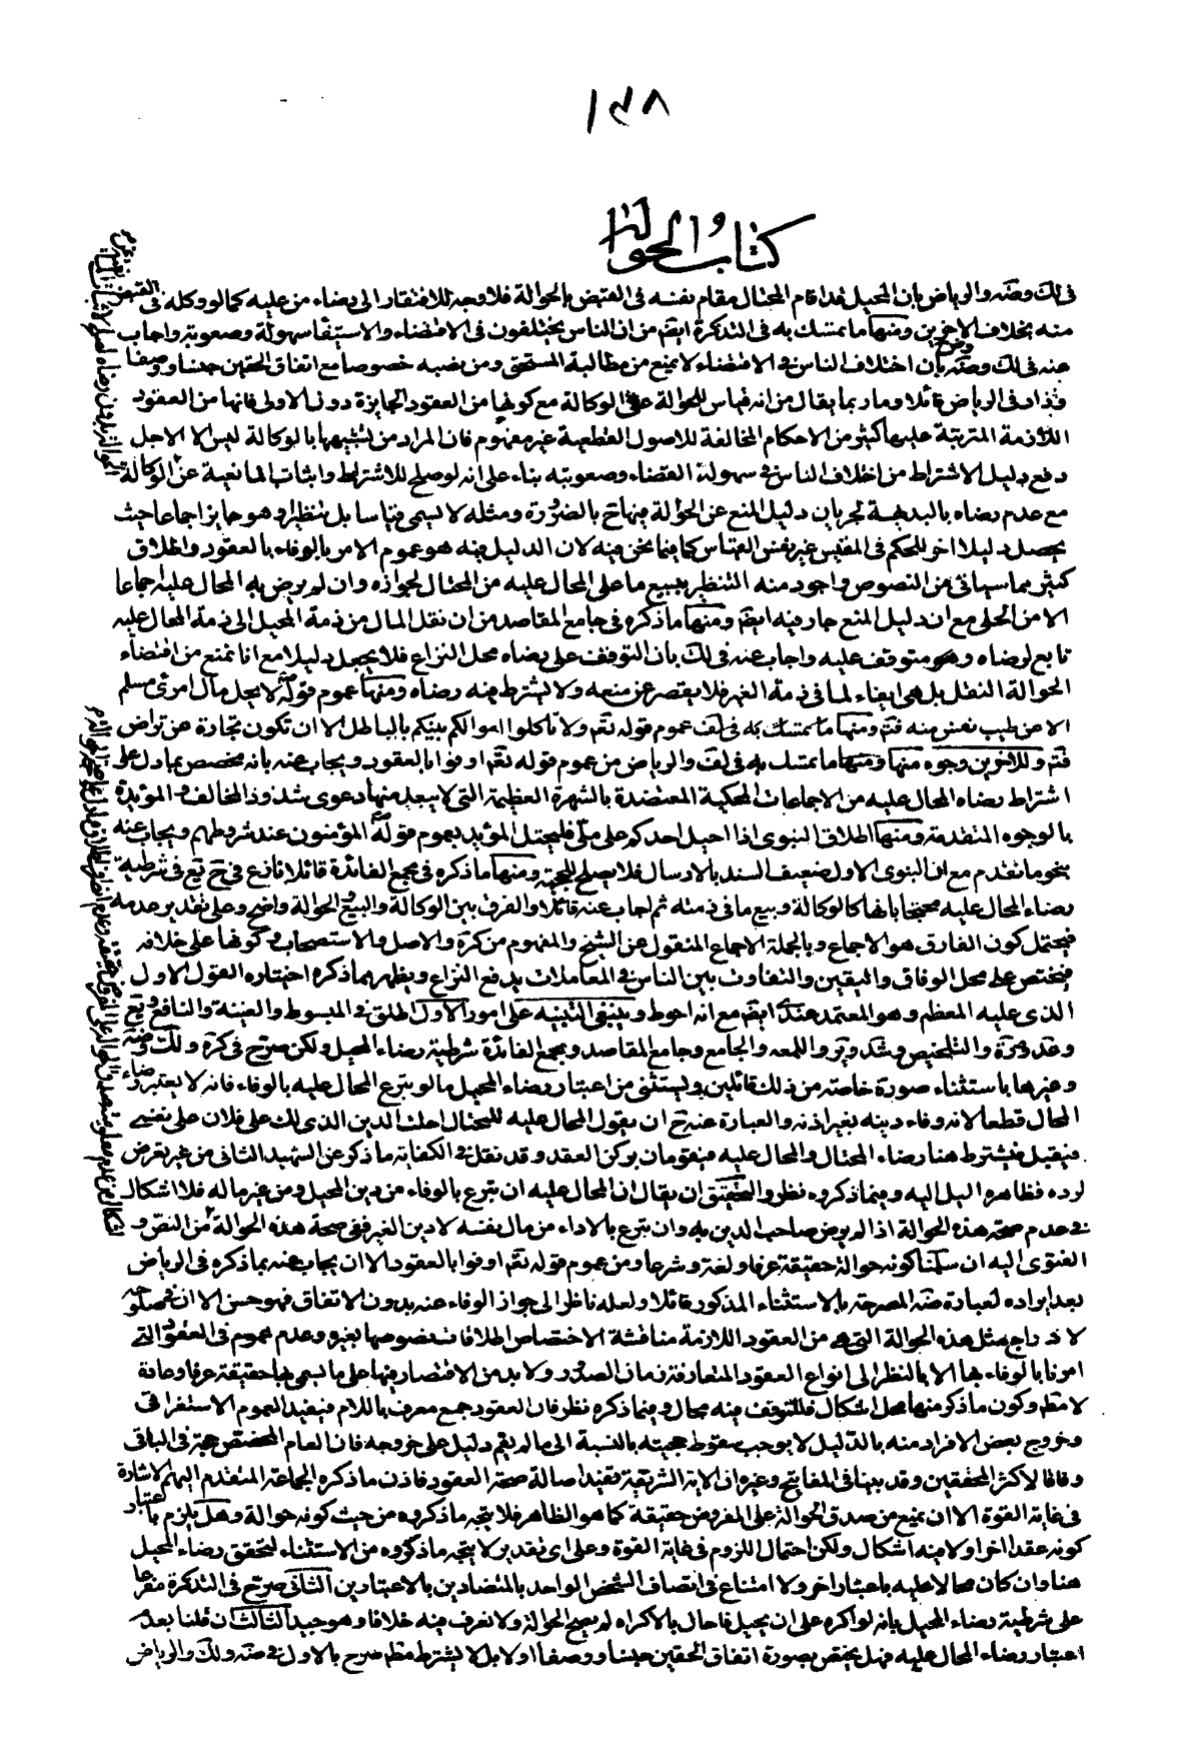 ١٣٨
كتاب الحوالة
في لك وضه والرياض بان المحيل قد اقام المحتال مقام نفسه في القبض بالحوالة فلا وجه للافتقار الى رضاء من عليه كما لو وكله في القبض
منه بخلاف الاخرين ومنها ما تمسك به في التذكرة ايضا من ان الناس يختلفون في الاقتضاء والاستيفاء سهولة وصعوبة واجاب
عنه في لك وضه بان اختلاف الناس في الاقتضاء لا يمنع من مطالبة المستحق ومن نصبه خصوصا مع اتفاق الحقين جنسا ووصفا
وزاد في الرياض قائلا وما ربما يقال من انه قياس للحوالة على الوكالة مع كونها من العقود الجايزة دون الاولى فانها من العقود
اللازمة المترتبة عليها كثير من الاحكام المخالفة للاصول القطعية غير مفهوم فان المراد من تشبيهها بالوكالة ليس الا لاجل
دفع دليل الاشتراط من اختلاف الناس في سهولة القضاء وصعوبته بناء على انه لو صلح للاشتراط واثبات المانعية عن الوكالة
مع عدم رضاه بالبديهة لجريان دليل المنع عن الحوالة فيها ح بالضرورة ومثله لا يسمى قياسا بل تنظيرا وهو جايز اجماعا حيث
يحصل دليلا اخر للحكم في المقيس غير نفس القياس كما فيما نحن فيه لان الدليل فيه هو عموم الامر بالوفاء بالعقود واطلاق
كثير مما سياتي من النصوص واجود منه التنظير ببيع ما على المحال عليه من المحتال لجوازه وان لم يرض به المحال عليه اجماعا
الا من الحلي مع ان دليل المنع جار فيه ايضا ومنها ما ذكره في جامع المقاصد من ان نقل المال من ذمة المحيل الى ذمة المحال عليه
تابع لرضاه وهو متوقف عليه واجاب عنه في لك بان التوقف على رضاه محل النزاع فلا يجعل دليلا مع انا نمنع من اقتضاء
الحوالة النقل بل هي ايفاء لما في ذمة الغير فلا يقصر عن منعه ولا يشترط فيه رضاه ومنها عموم قوله لا يحل مال امرئ مسلم
الا عن طيب نفس منه فتم ومنها ما تمسك به في لف عموم قوله تعم ولا تاكلوا اموالكم بينكم بالباطل الا ان تكون تجارة عن تراض
فتم وللاخرين وجوه منها ومنها ما تمسك به في لف والرياض من عموم قوله تعم اوفوا بالعقود ويجاب عنه بانه مخصص بما دل على
اشتراط رضاء المحال عليه من الاجماعات المحكية المعتضدة بالشهرة العظيمة التي لا يبعد منها دعوى شذوذ المخالف و المؤيدة
بالوجوه المتقدمة ومنها اطلاق النبوي اذا احيل احدكم على ملي فليحتل المؤيد بعموم قوله المؤمنون عند شروطهم ويجاب عنه
بنحو ما تقدم مع ان النبوي الاول ضعيف السند بالارسال فلا يصلح للحجية ومنها ما ذكره في مجمع الفائدة قائلا نازع في ح يع في شرطية
رضاء المحال عليه محتجا بانها كالوكالة وبيع ما في ذمته ثم اجاب عنه قائلا والفرق بين الوكالة والبيع والحوالة واضح وعلى تقدير عدمه
فيحتمل كون الفارق هو الاجماع وبالجملة الاجماع المنقول عن الشيخ والمفهوم من كرة والاصل والاستصحاب وكونها على خلافه
فيختص على محل الوفاق واليقين والتفاوت بين الناس في المعاملات يدفع النزاع ويظهر بما ذكره اختياره القول الاول
الذي عليه المعظم وهو المعتمد عندي ايضا مع انه احوط وينبغي التنبيه على امور الاول اطلق في المبسوط والغنية والنافع ويع
وعد وكرة والتلخيص وشد وير واللمعه والجامع وجامع المقاصد ومجمع الفائدة شرطية رضاء المحيل ولكن صرح في كرة ولك وضه
وغيرها باستثناء صورة خاصة من ذلك قائلين ويستثنى من اعتبار رضاء المحيل ما لو تبرع المحال عليه بالوفاء فانه لا يعتبر رضاء
المحال قطعا لانه وفاء دينه بغير اذنه والعبارة عنه ح ان يقول المحال عليه للمحتال احلت الدين الذي لك على فلان على نفسي
فيقبل فيشترط هنا رضاء المحتال والمحال عليه فيقومان بركن العقد وقد نقل في الكفاية ما ذكر عن الشهيد الثاني من غير تعرض
لرده فظاهره الميل اليه وفيما ذكروه نظر والتحقيق ان يقال ان المحال عليه ان تبرع بالوفاء من دين المحيل ومن غير ماله فلا اشكال
في عدم صحة هذه الحوالة اذا لم يرض صاحب الدين به وان تبرع بالاداء من مال نفسه لا دين الغير ففي صحة هذه الحوالة من النص و
الفتوى اليه ان سلمنا كونه حوالة حقيقة عرفا ولغة وشرعا ومن عموم قوله تعم اوفوا بالعقود الا ان يجاب عنه بما ذكره في الرياض
بعد ايراده لعبارة ضه المصرحة بالاستثناء المذكور قائلا ولعله ناظر الى جواز الوفاء عنه بدون الاتفاق فهو حسن الا ان في صلوحه
لادراج مثل هذه الحوالة التي هي من العقود اللازمة مناقشة لاختصاص اطلاقات نصوصها بغيره وعدم عموم في العقود التي
امرنا بالوفاء بها الا بالنظر الى انواع العقود المتعارفة زمان الصدور ولا بد من الاقتصار فيها على ما يسمى بها حقيقة عرفا وعادة
لا مطم وكون ما ذكر منها محل اشكال فللتوقف فيه مجال وفيما ذكره نظر فان العقود جمع معرف باللام فيفيد العموم الاستغراقي
وخروج بعض الافراد منه بالدليل لا يوجب سقوط حجيته بالنسبة الى ما لم يقم دليل على خروجه فان العام المخصص حجة في الباقي
وفاقا لاكثر المحققين وقد بينا في المفاتيح وغيره ان الاية الشريفة تفيد اصالة صحة العقود فاذن ما ذكره الجماعة المتقدم اليهم الاشارة
في غاية القوة الا ان يمنع من صدق الحوالة على المفروض حقيقة كما هو الظاهر فلا يتجه ما ذكروه من حيث كونه حوالة وهل يلزم باعتبار
كونه عقدا اخر اولا فيه اشكال ولكن احتمال اللزوم في غاية القوة وعلى اي تقدير لا يتجه ما ذكروه من الاستثناء لتحقق رضاء المحيل
هنا وان كان محالا عليه باعتبار اخر ولا امتناع في اتصاف الشخص الواحد بالمتضادين بالاعتبارين الثاني صرح في التذكرة متفرعا
على شرطية رضاء المحيل بانه لو اكره على ان يحيل فاحال بالاكراه لم يصح الحوالة ولا نعرف فيه خلافا وهو جيد الثالث ان قلنا بعدم
اعتبار رضاء المحال عليه فهل يختص بصورة اتفاق الحقين جنسا ووصفا اولا بل لا يشترط مطم صرح بالاول في ضه ولك والرياض